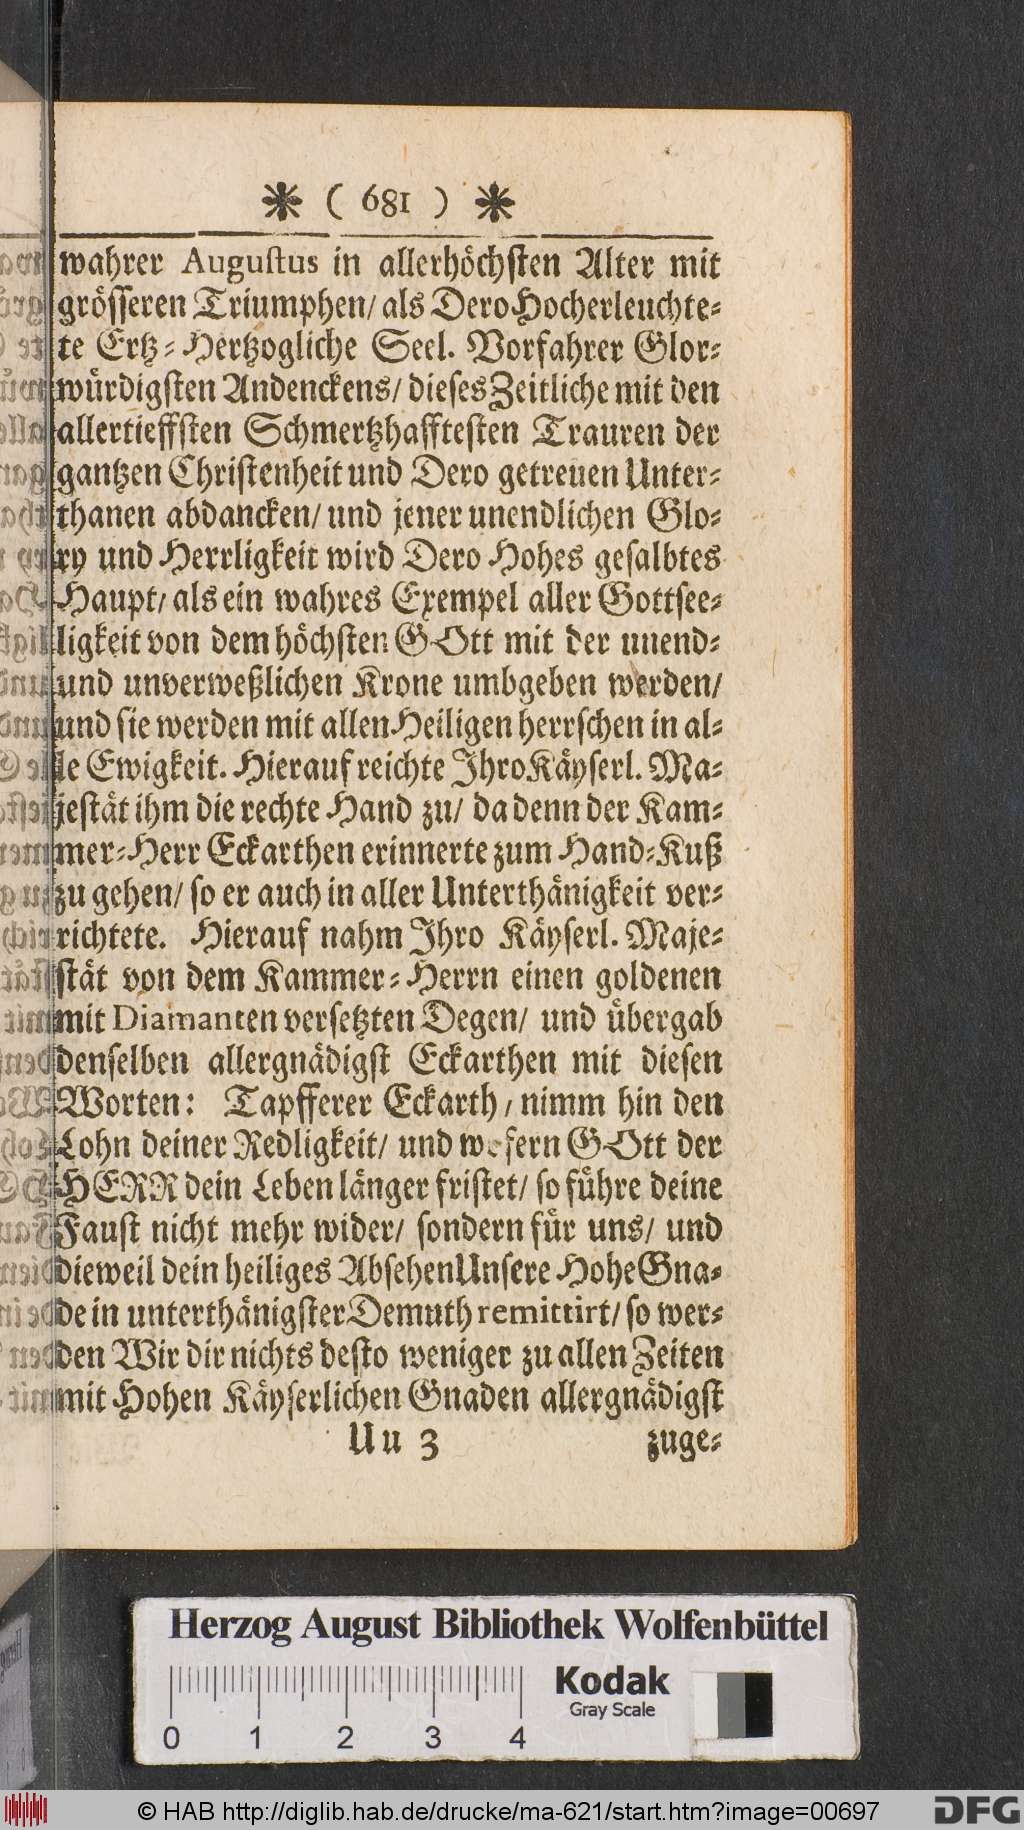 * ( 681 ) *
wahrer Augustus in allerhöchsten Alter mit
grösseren Triumphen/ als Dero Hocherleuchte-
te Ertz-Hertzogliche Seel. Vorfahrer Glor-
würdigsten Andenckens/ dieses Zeitliche mit den
allertieffsten Schmertzhafftesten Trauren der
gantzen Christenheit und Dero getreuen Unter-
thanen abdancken/ und jener unendlichen Glo-
ry und Herrligkeit wird Dero Hohes gesalbtes
Haupt/ als ein wahres Exempel aller Gottsee-
ligkeit von dem höchsten GOtt mit der unend-
und unverweßlichen Krone umbgeben werden/
und sie werden mit allen Heiligen herrschen in al-
le Ewigkeit. Hierauf reichte Ihro Käyserl. Ma-
jestät ihm die rechte Hand zu/ da denn der Kam-
mer-Herr Eckarthen erinnerte zum Hand-Kuß
zu gehen/ so er auch in aller Unterthänigkeit ver-
richtete. Hierauf nahm Ihro Käyserl. Maje-
stät von dem Kammer-Herrn einen goldenen
mit Diamanten versetzten Degen/ und übergab
denselben allergnädigst Eckarthen mit diesen
Worten: Tapfferer Eckarth/ nimm hin den
Lohn deiner Redligkeit/ und wofern GOtt der
HERR dein Leben länger fristet/ so führe deine
Faust nicht mehr wider/ sondern für uns/ und
dieweil dein heiliges Absehen Unsere Hohe Gna-
de in unterthänigster Demuth remittirt/ so wer-
den Wir dir nichts desto weniger zu allen Zeiten
mit Hohen Käyserlichen Gnaden allergnädigst
Uu 3 zuge-
Herzog August Bibliothek Wolfenbüttel
Kodak
Gray Scale
0 1 2 3 4
© HAB http://diglib.hab.de/drucke/ma-621/start.htm?image=00697
DFG